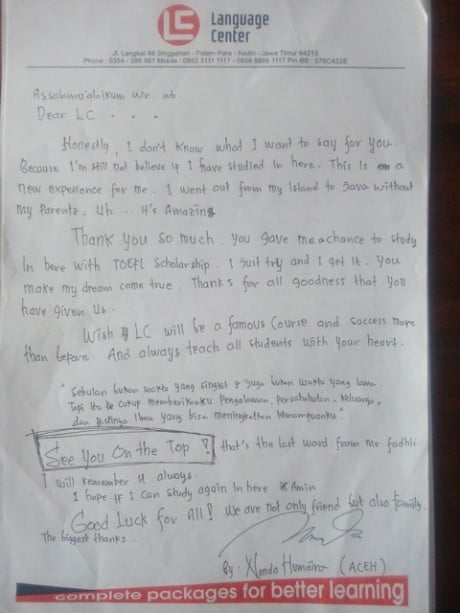 LC Language
Center
Jl. Langkat 88 Singgahan - Pelem Pare - Kediri - Jawa Timur 64213
Phone : 0354 - 396 581 Mobile : 0852 3111 1117 - 0858 8888 1117 Pin BB : 576C422E
Assalamu'alaikum Wr wb
Dear LC . . .
Honestly, I don't know what I want to say for you.
Because I'm still not believe if I have studied in here. This is a
new experience for me. I went out from my Island to Java without
my Parents. Uh ... It's Amazing.
Thank you so much. you gave me a chance to study
In here with TOEFL Scholarship. I just try and I get it. you
make my dream come true. Thanks for all goodness that you
have given us.
Wish LC will be a famous Course and success more
than before. And always teach all students with your heart.
"Sebulan bukan waktu yang singkat & Juga bukan waktu yang lama.
Tapi Itu cukup memberikanku Pengalaman, Persahabatan, Keluarga,
dan pastinya Ilmu yang bisa meningkatkan Kemampuanku".
See You On the Top ! that's the last word from Mr fadhli.
I will remember it always.
I hope if I can study again In here * Amin
Good Luck for All! We are not only friend but also family.
The biggest thanks.
By : Nanda Humaira (ACEH)
complete packages for better learning